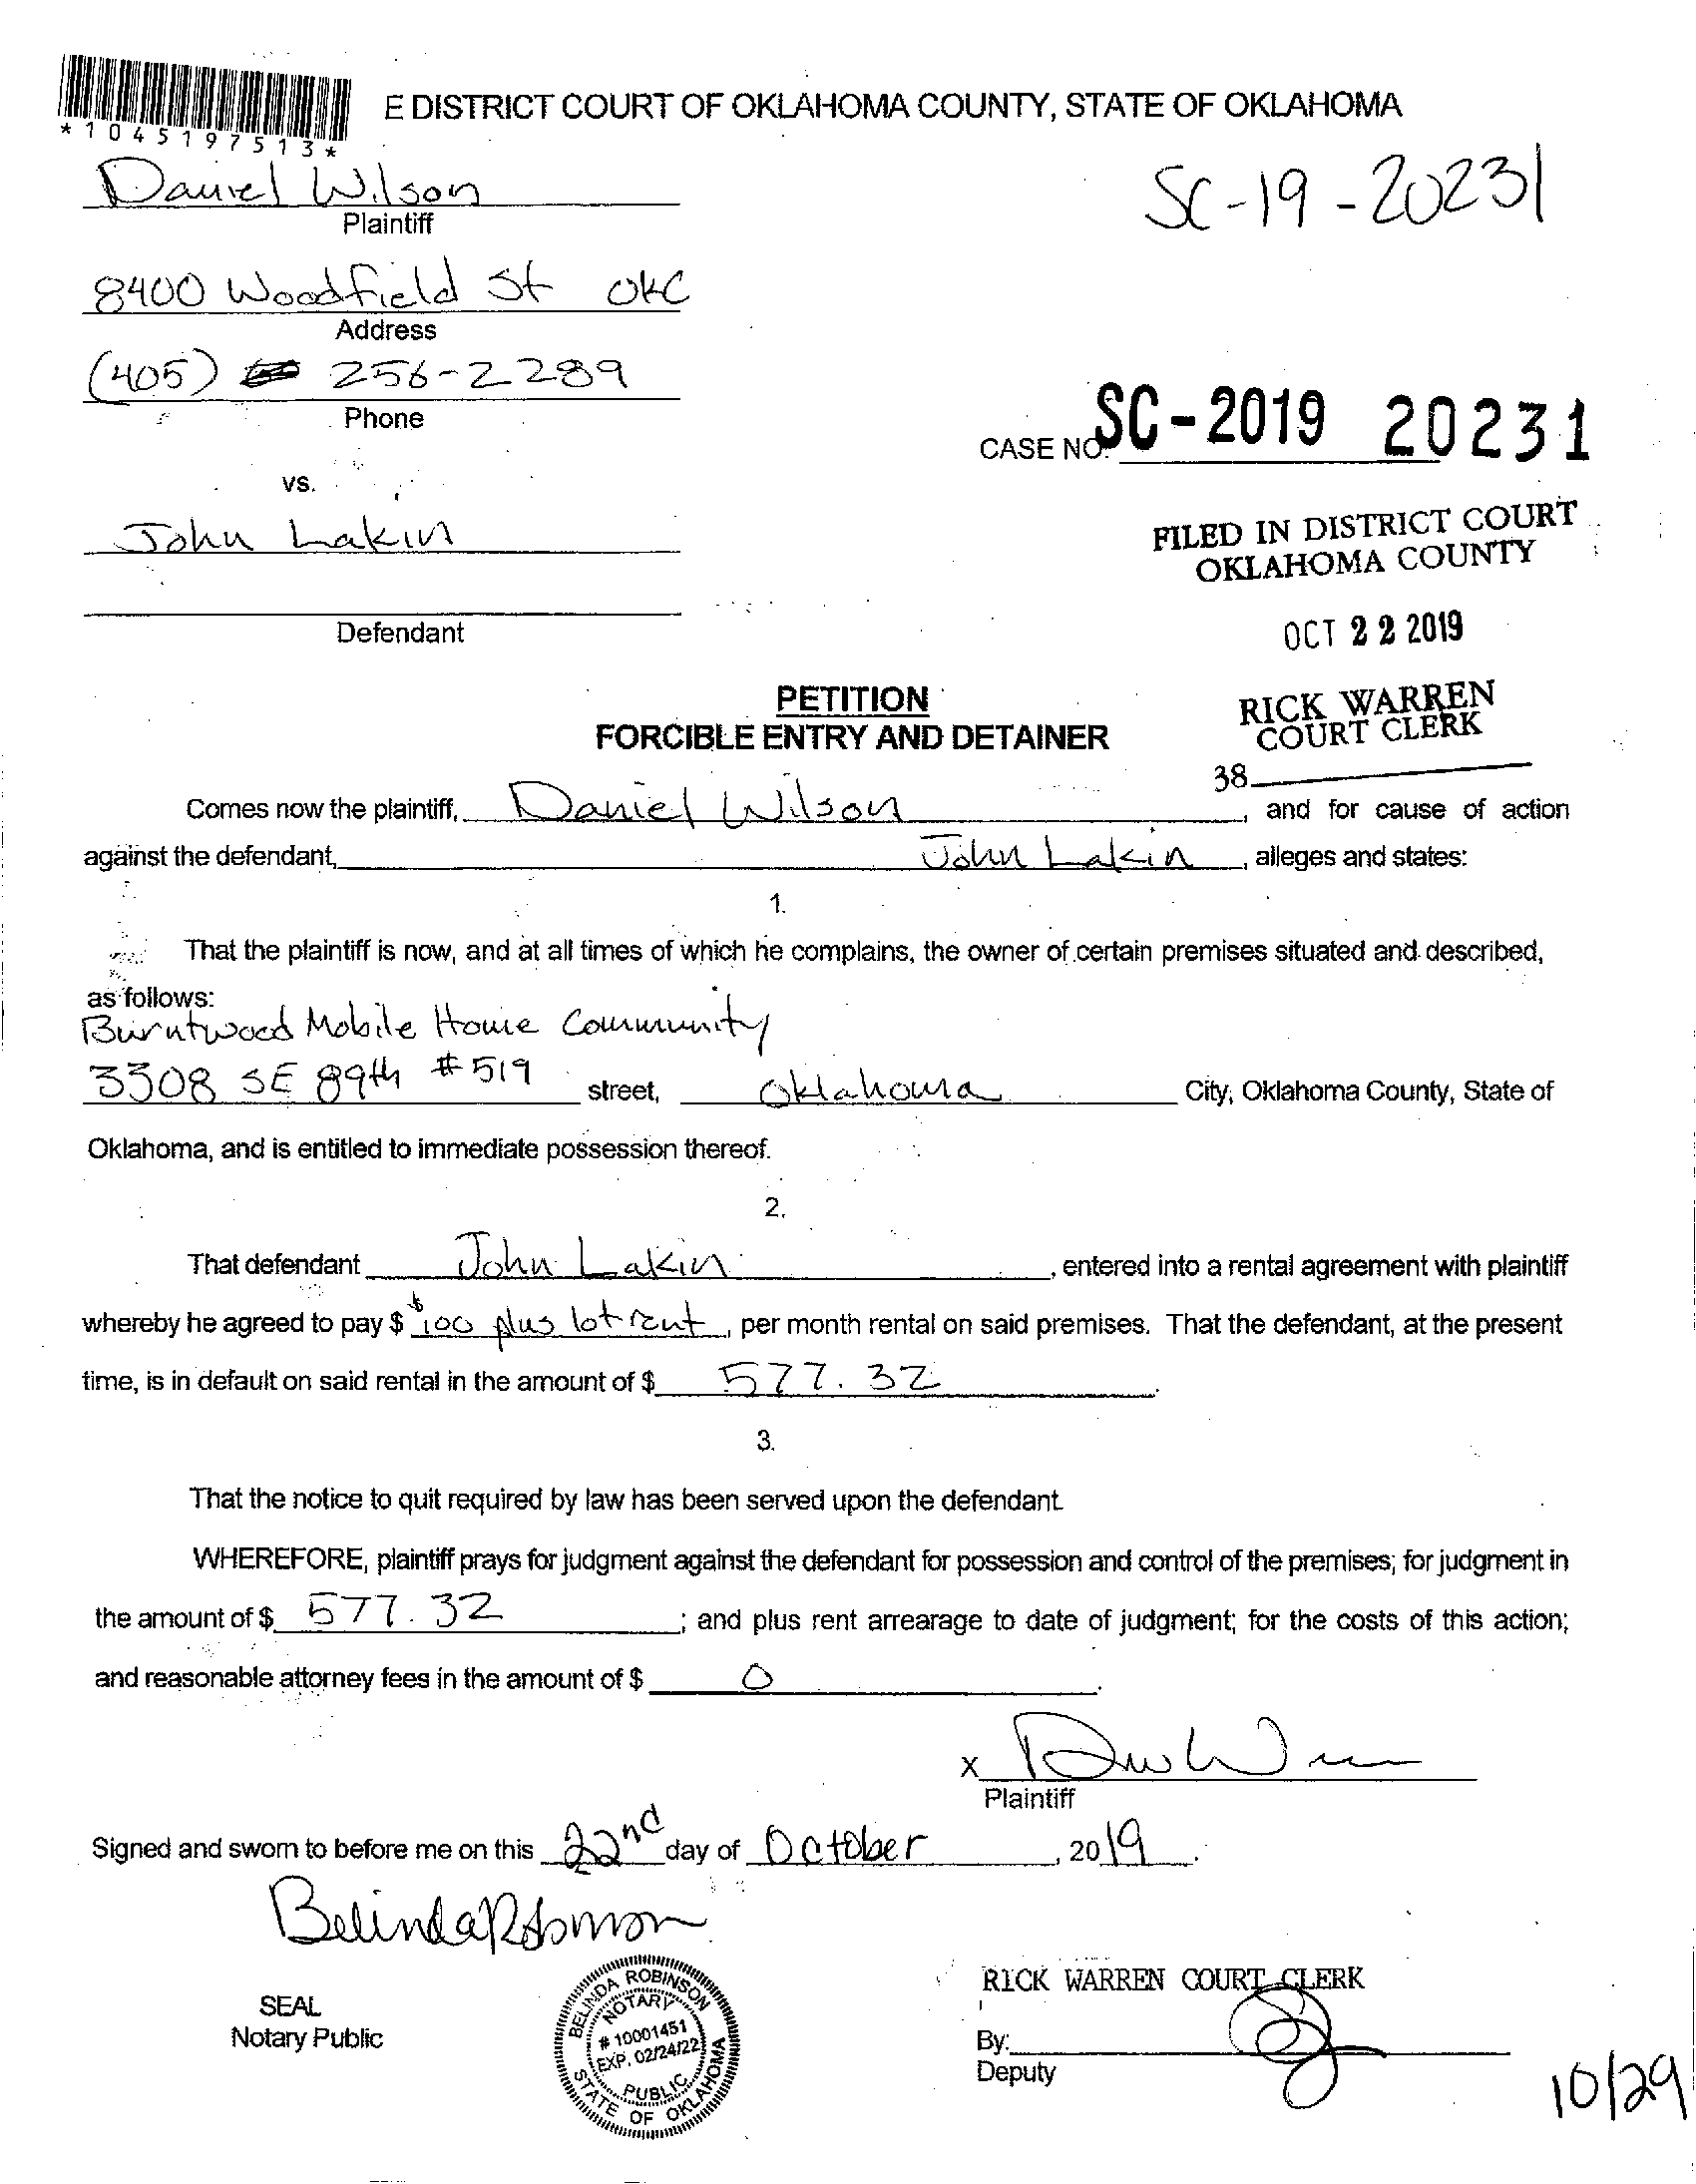 E DISTRICT COURT OF OKLAHOMA COUNTY, STATE OF OKLAHOMA
*1045197513*
Daniel Wilson
Plaintiff
SC-19-20231
8400 Woodfield St OKC
Address
(405) 256-2289
Phone
CASE NO. SC-2019 20231
vs.
John Lakin
FILED IN DISTRICT COURT
OKLAHOMA COUNTY
Defendant
OCT 22 2019
PETITION
FORCIBLE ENTRY AND DETAINER
RICK WARREN
COURT CLERK
38
Comes now the plaintiff, Daniel Wilson, and for cause of action
against the defendant, John Lakin, alleges and states:
1.
That the plaintiff is now, and at all times of which he complains, the owner of certain premises situated and described,
as follows:
Burntwood Mobile Home Community
3308 SE 89th #519 street, Oklahoma City, Oklahoma County, State of
Oklahoma, and is entitled to immediate possession thereof.
2.
That defendant John Lakin, entered into a rental agreement with plaintiff
whereby he agreed to pay $ $100 plus lot rent, per month rental on said premises. That the defendant, at the present
time, is in default on said rental in the amount of $ 577.32.
3.
That the notice to quit required by law has been served upon the defendant.
WHEREFORE, plaintiff prays for judgment against the defendant for possession and control of the premises; for judgment in
the amount of $ 577.32; and plus rent arrearage to date of judgment; for the costs of this action;
and reasonable attorney fees in the amount of $ 0.
X
Plaintiff
Signed and sworn to before me on this 22nd day of October, 2019.
Belinda Robinson
SEAL
Notary Public
BELINDA ROBINSON
NOTARY
# 10001451
EXP. 02/24/22
PUBLIC
STATE OF OKLAHOMA
RICK WARREN COURT CLERK
By:
Deputy
10/29